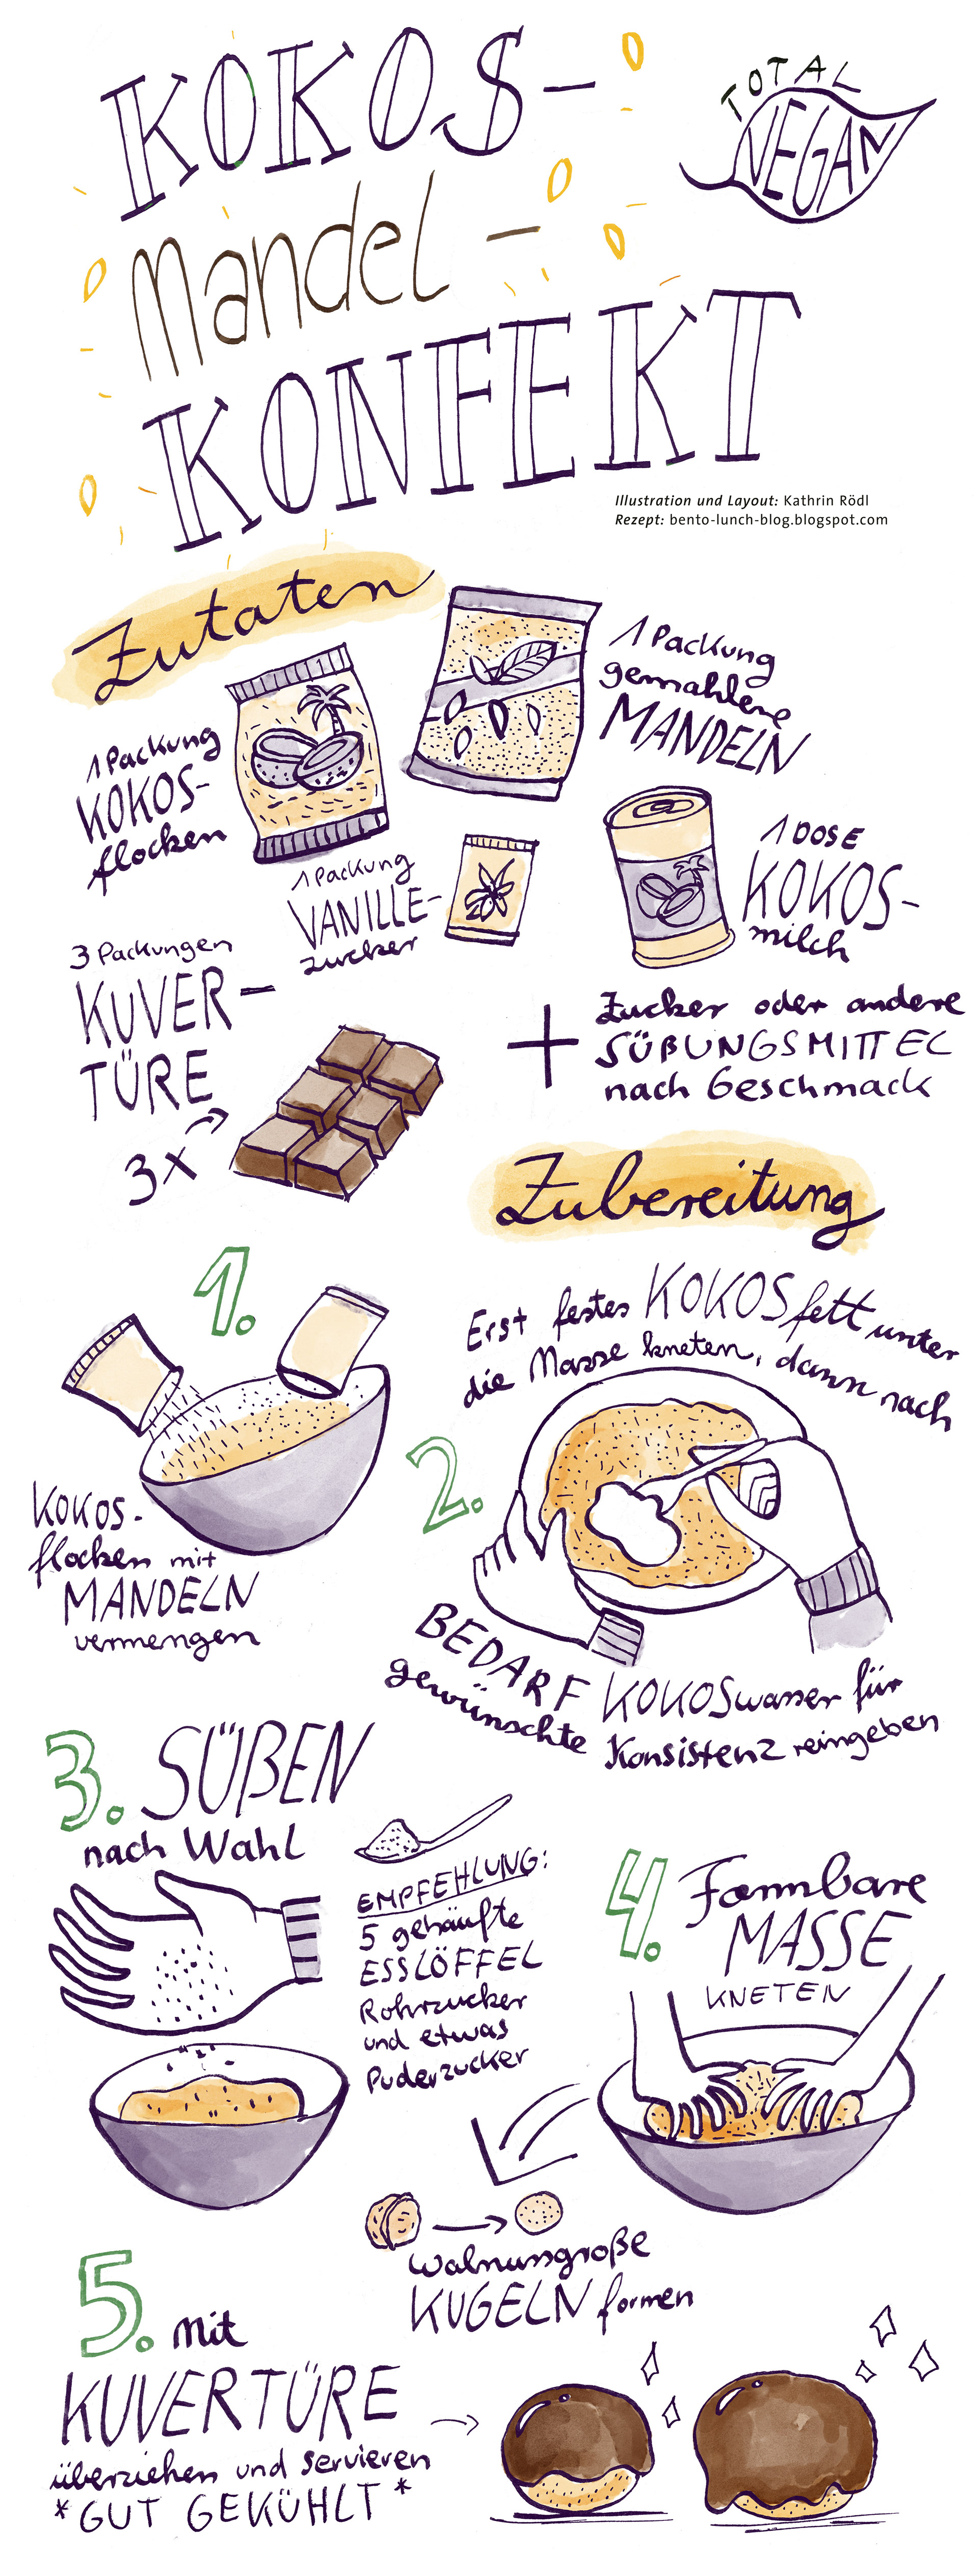 KOKOS-
Mandel-
KONFEKT
TOTAL
VEGAN
Illustration und Layout: Kathrin Rödl
Rezept: bento-lunch-blog.blogspot.com
Zutaten
1 Packung
KOKOS-
flocken
1 Packung
gemahlene
MANDELN
1 Packung
VANILLE-
zucker
1 DOSE
KOKOS-
milch
3 Packungen
KUVER-
TÜRE
3x
+ Zucker oder andere
SÜßUNGSMITTEL
nach Geschmack
Zubereitung
1.
KOKOS-
flocken mit
MANDELN
vermengen
2.
Erst festes KOKOSfett unter
die Masse kneten, dann nach
BEDARF KOKOSwasser für
gewünschte Konsistenz reingeben
3. SÜßEN
nach Wahl
EMPFEHLUNG:
5 gehäufte
ESSLÖFFEL
Rohrzucker
und etwas
Puderzucker
4. Formbare
MASSE
KNETEN
Walnussgroße
KUGELN formen
5. Mit
KUVERTÜRE
überziehen und servieren
*GUT GEKÜHLT*